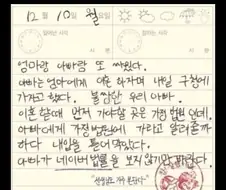 12월 10일 월요일
엄마랑 아빠랑 또 싸웠다.
아빠는 엄마에게 이혼 하자며 내일 구청에
가자고 했다. 불쌍한 우리 아빠.
이혼 할때 먼저 가야할 곳은 가정 법원 인데.
아빠에게 가정법원에 가라고 알려줄까
하다 내입을 틀어막았다.
아빠가 네이버 법률을 보지 않기만 바란다.